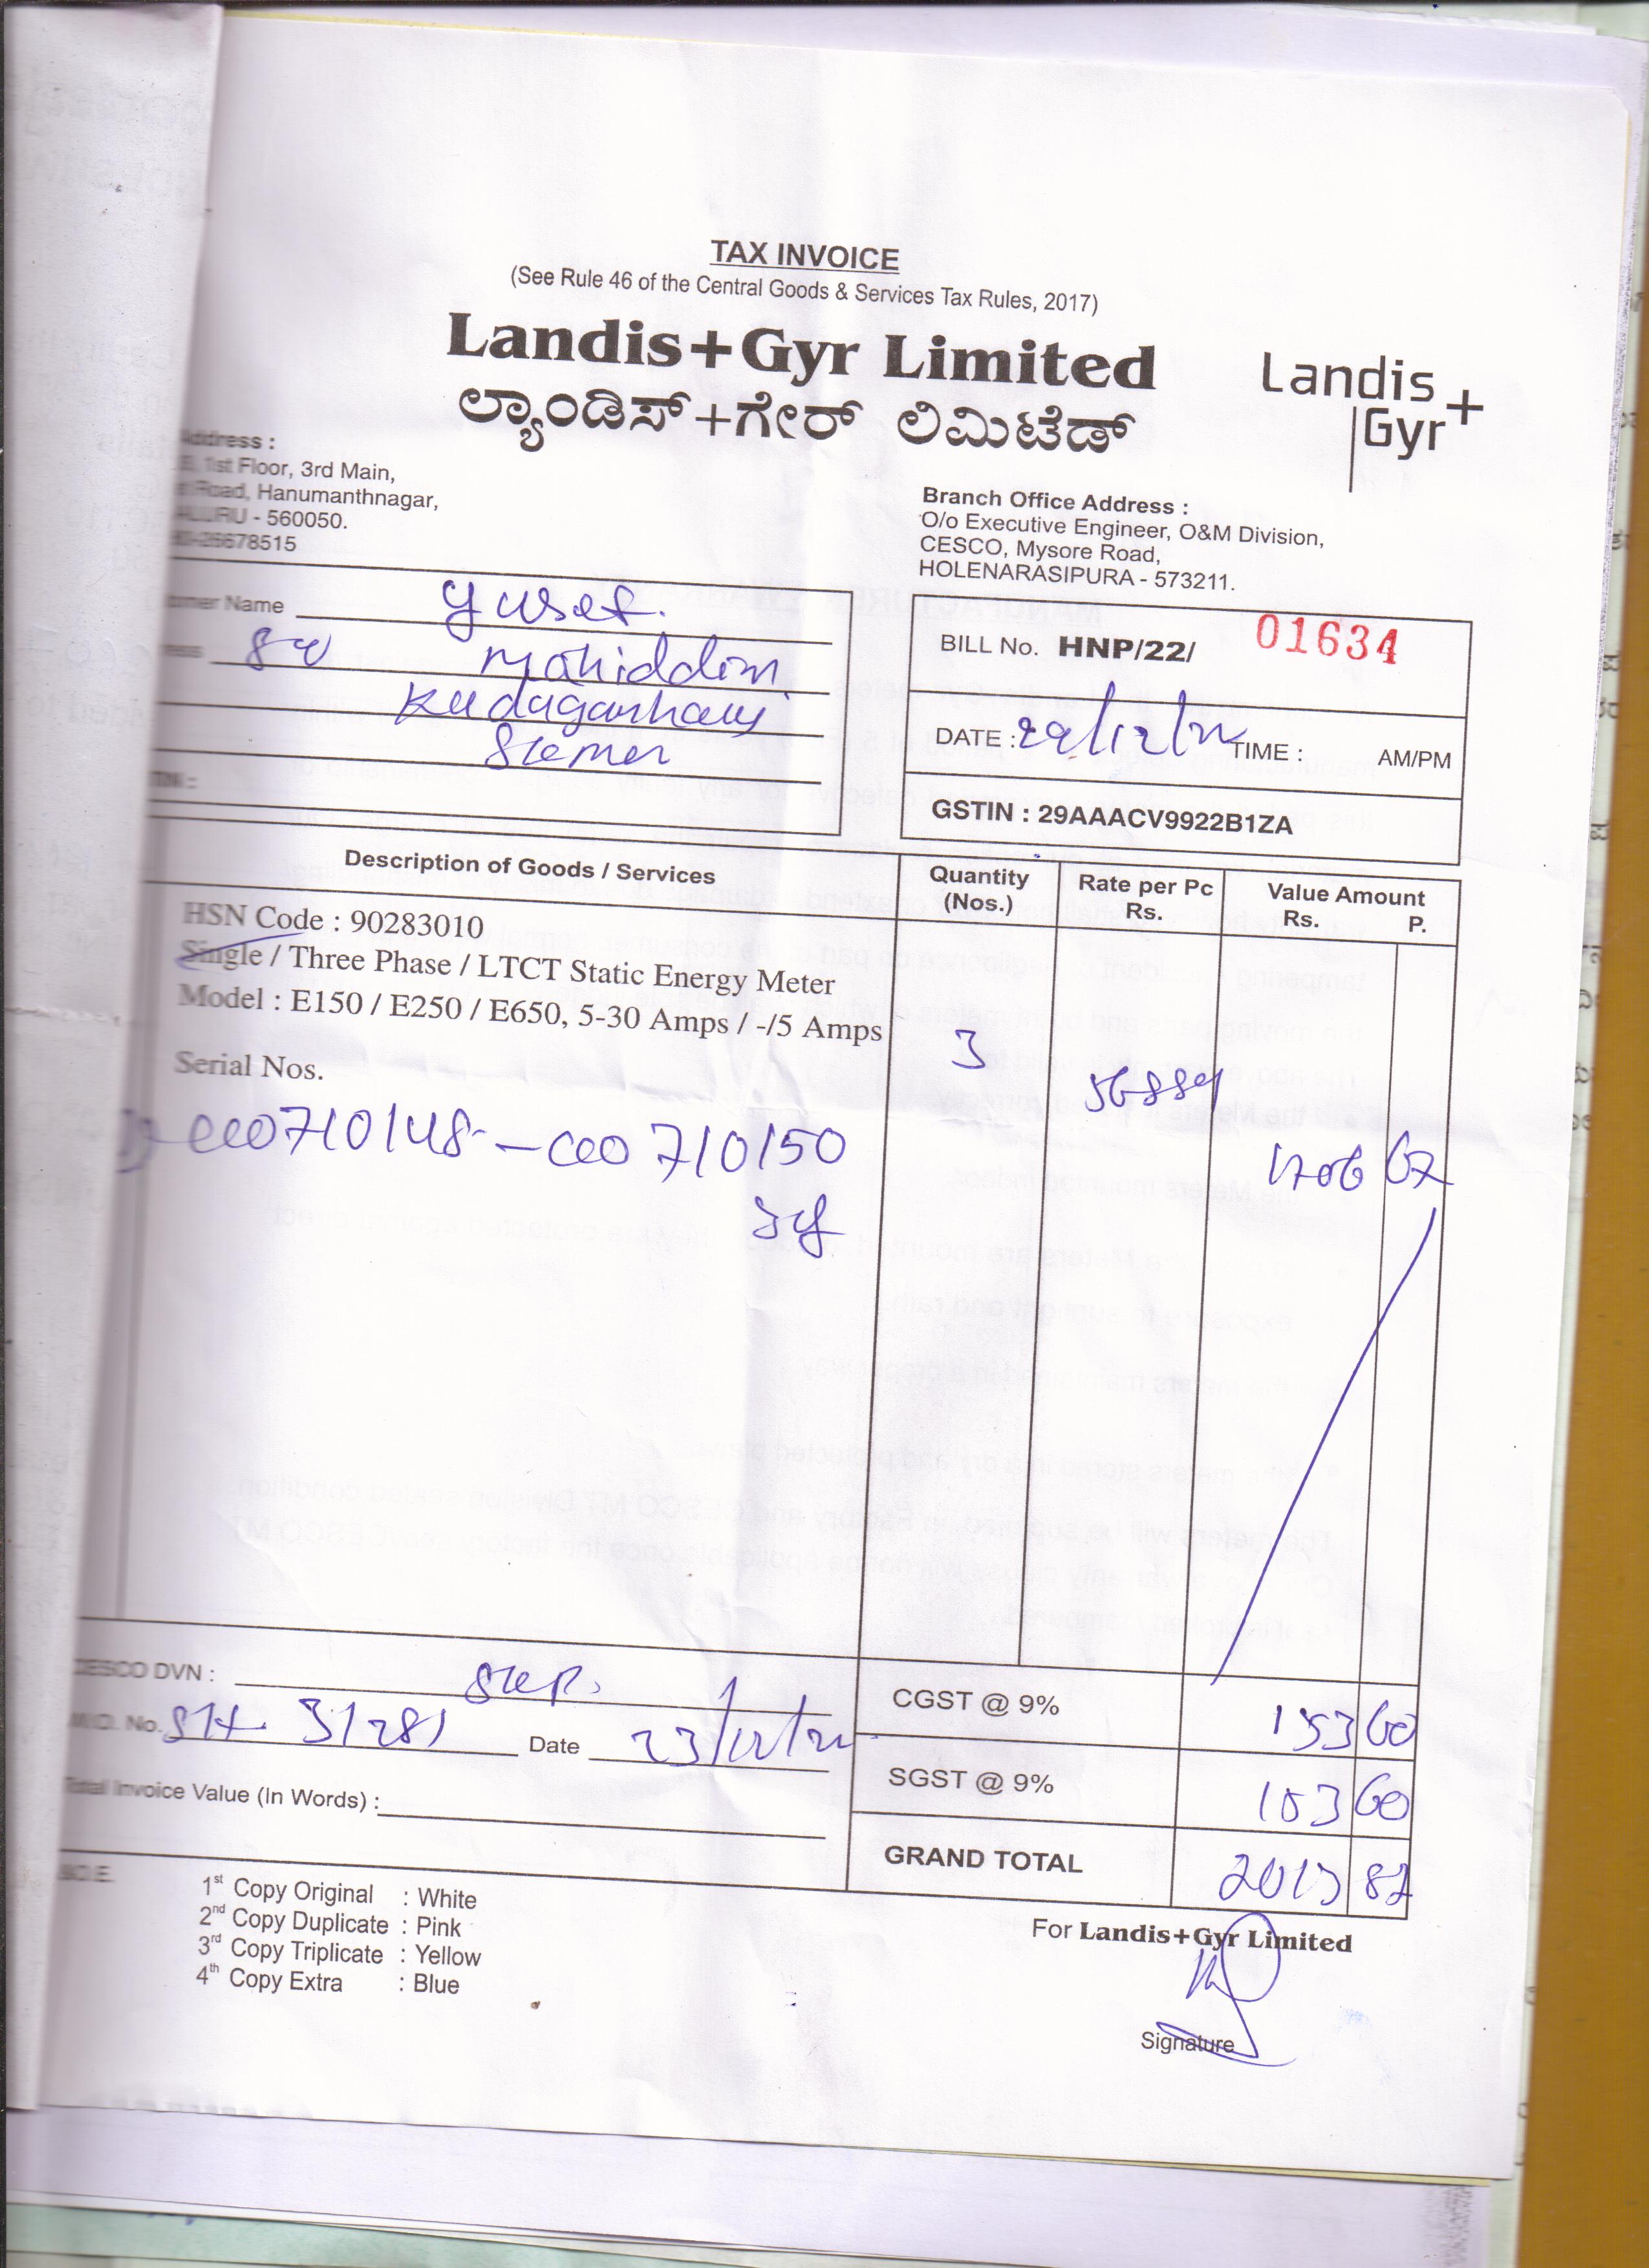 TAX INVOICE
(See Rule 46 of the Central Goods & Services Tax Rules, 2017)
Landis+Gyr Limited
ಲ್ಯಾಂಡಿಸ್+ಗೇರ್ ಲಿಮಿಟೆಡ್
Landis
Gyr+
Address :
1st Floor, 3rd Main,
Road, Hanumanthnagar,
- 560050.
26678515
Branch Office Address :
O/o Executive Engineer, O&M Division,
CESCO, Mysore Road,
HOLENARASIPURA - 573211.
Name Yusef.
Mohiddin
BILL No. HNP/22/ 01634
DATE : 29/12/22 TIME : AM/PM
GSTIN : 29AAACV9922B1ZA
Description of Goods / Services
Quantity (Nos.)
Rate per Pc Rs.
Value Amount Rs. P.
HSN Code : 90283010
Single / Three Phase / LTCT Static Energy Meter
Model : E150 / E250 / E650, 5-30 Amps / -/5 Amps
3
56889
Serial Nos.
710148 - 710150
1706 67
CESCO DVN :
CGST @ 9% 153 60
No. 31281 Date 23/12/22
SGST @ 9% 153 60
Total Invoice Value (In Words) :
GRAND TOTAL 2013 87
1st Copy Original : White
2nd Copy Duplicate : Pink
3rd Copy Triplicate : Yellow
4th Copy Extra : Blue
For Landis+Gyr Limited
Signature